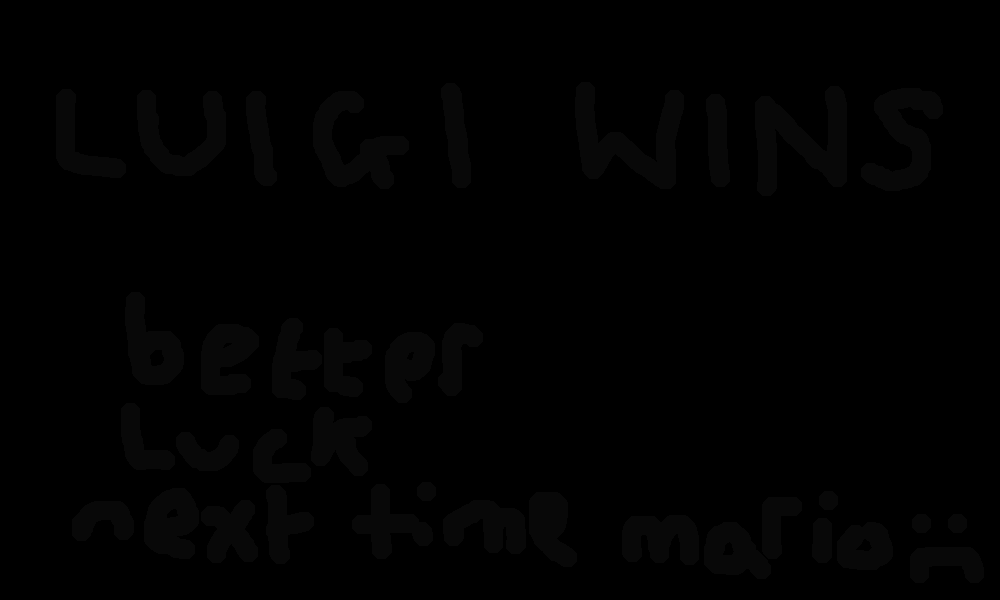 LUIGI WINS
better
Luck
next time mario :(